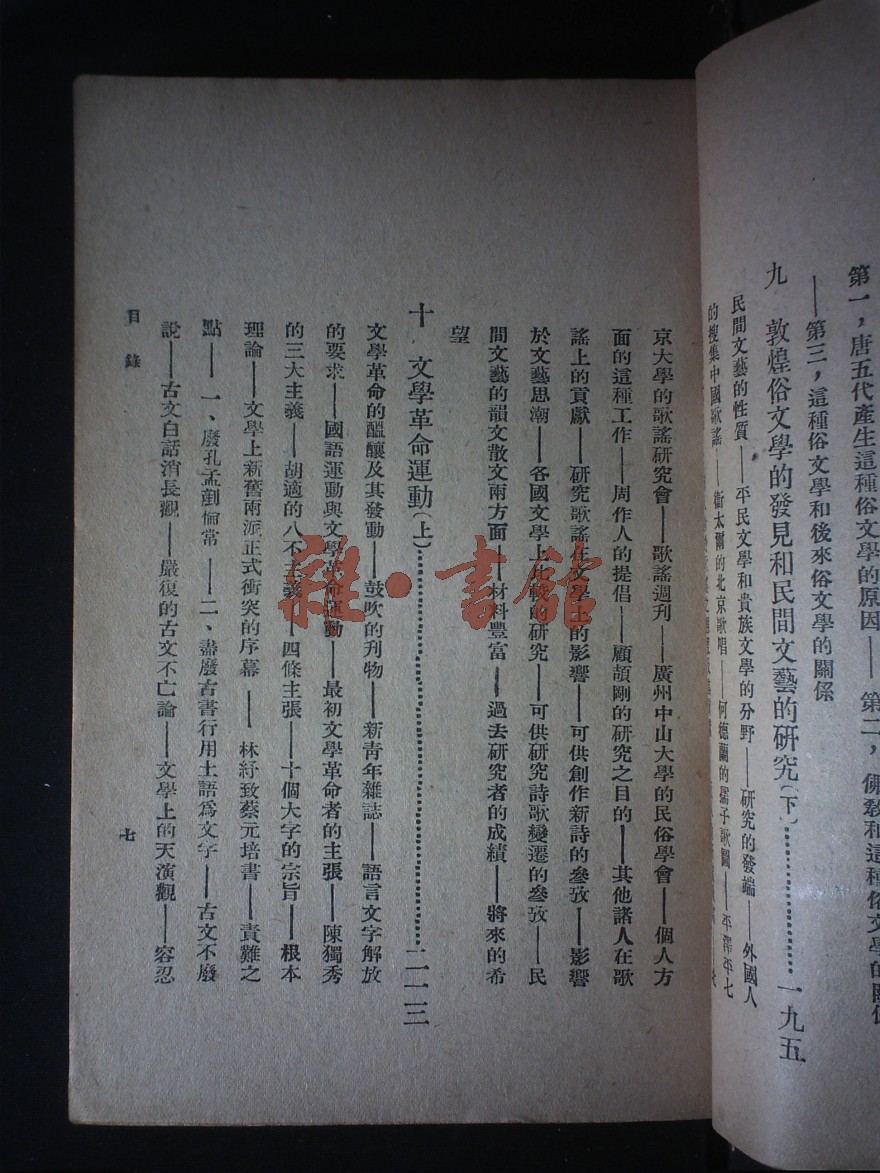 第一，唐五代產生這種俗文學的原因——第二，佛教和這種俗文學的關係
——第三，這種俗文學和後來俗文學的關係
九 敦煌俗文學的發見和民間文藝的研究（下）……一九五
民間文藝的性質——平民文學和貴族文學的分野——研究的發端——外國人
的搜集中國歌謠——衞太爾的北京歌唱——何德蘭的孺子歌圖——平澤平七
京大學的歌謠研究會——歌謠週刊——廣州中山大學的民俗學會——個人方
面的這種工作——周作人的提倡——顧頡剛的研究之目的——其他諸人在歌
謠上的貢獻——研究歌謠在文學上的影響——可供創作新詩的參攷——影響
於文藝思潮——各國文學上比較的研究——可供研究詩歌變遷的參攷——民
間文藝的韻文散文兩方面——材料豐富——過去研究者的成績——將來的希
望
十 文學革命運動（上）……二一三
文學革命的醞釀及其發動——鼓吹的刊物——新青年雜誌——語言文字解放
的要求——國語運動與文學革命運動——最初文學革命者的主張——陳獨秀
的三大主義——胡適的八不主義——四條主張——十個大字的宗旨——根本
理論——文學上新舊兩派正式衝突的序幕——林紓致蔡元培書——責難之
點——一、廢孔孟剷倫常——二、盡廢古書行用土語爲文字——古文不廢
說——古文白話消長觀——嚴復的古文不亡論——文學上的天演觀——容忍
目錄
七
雜·書館